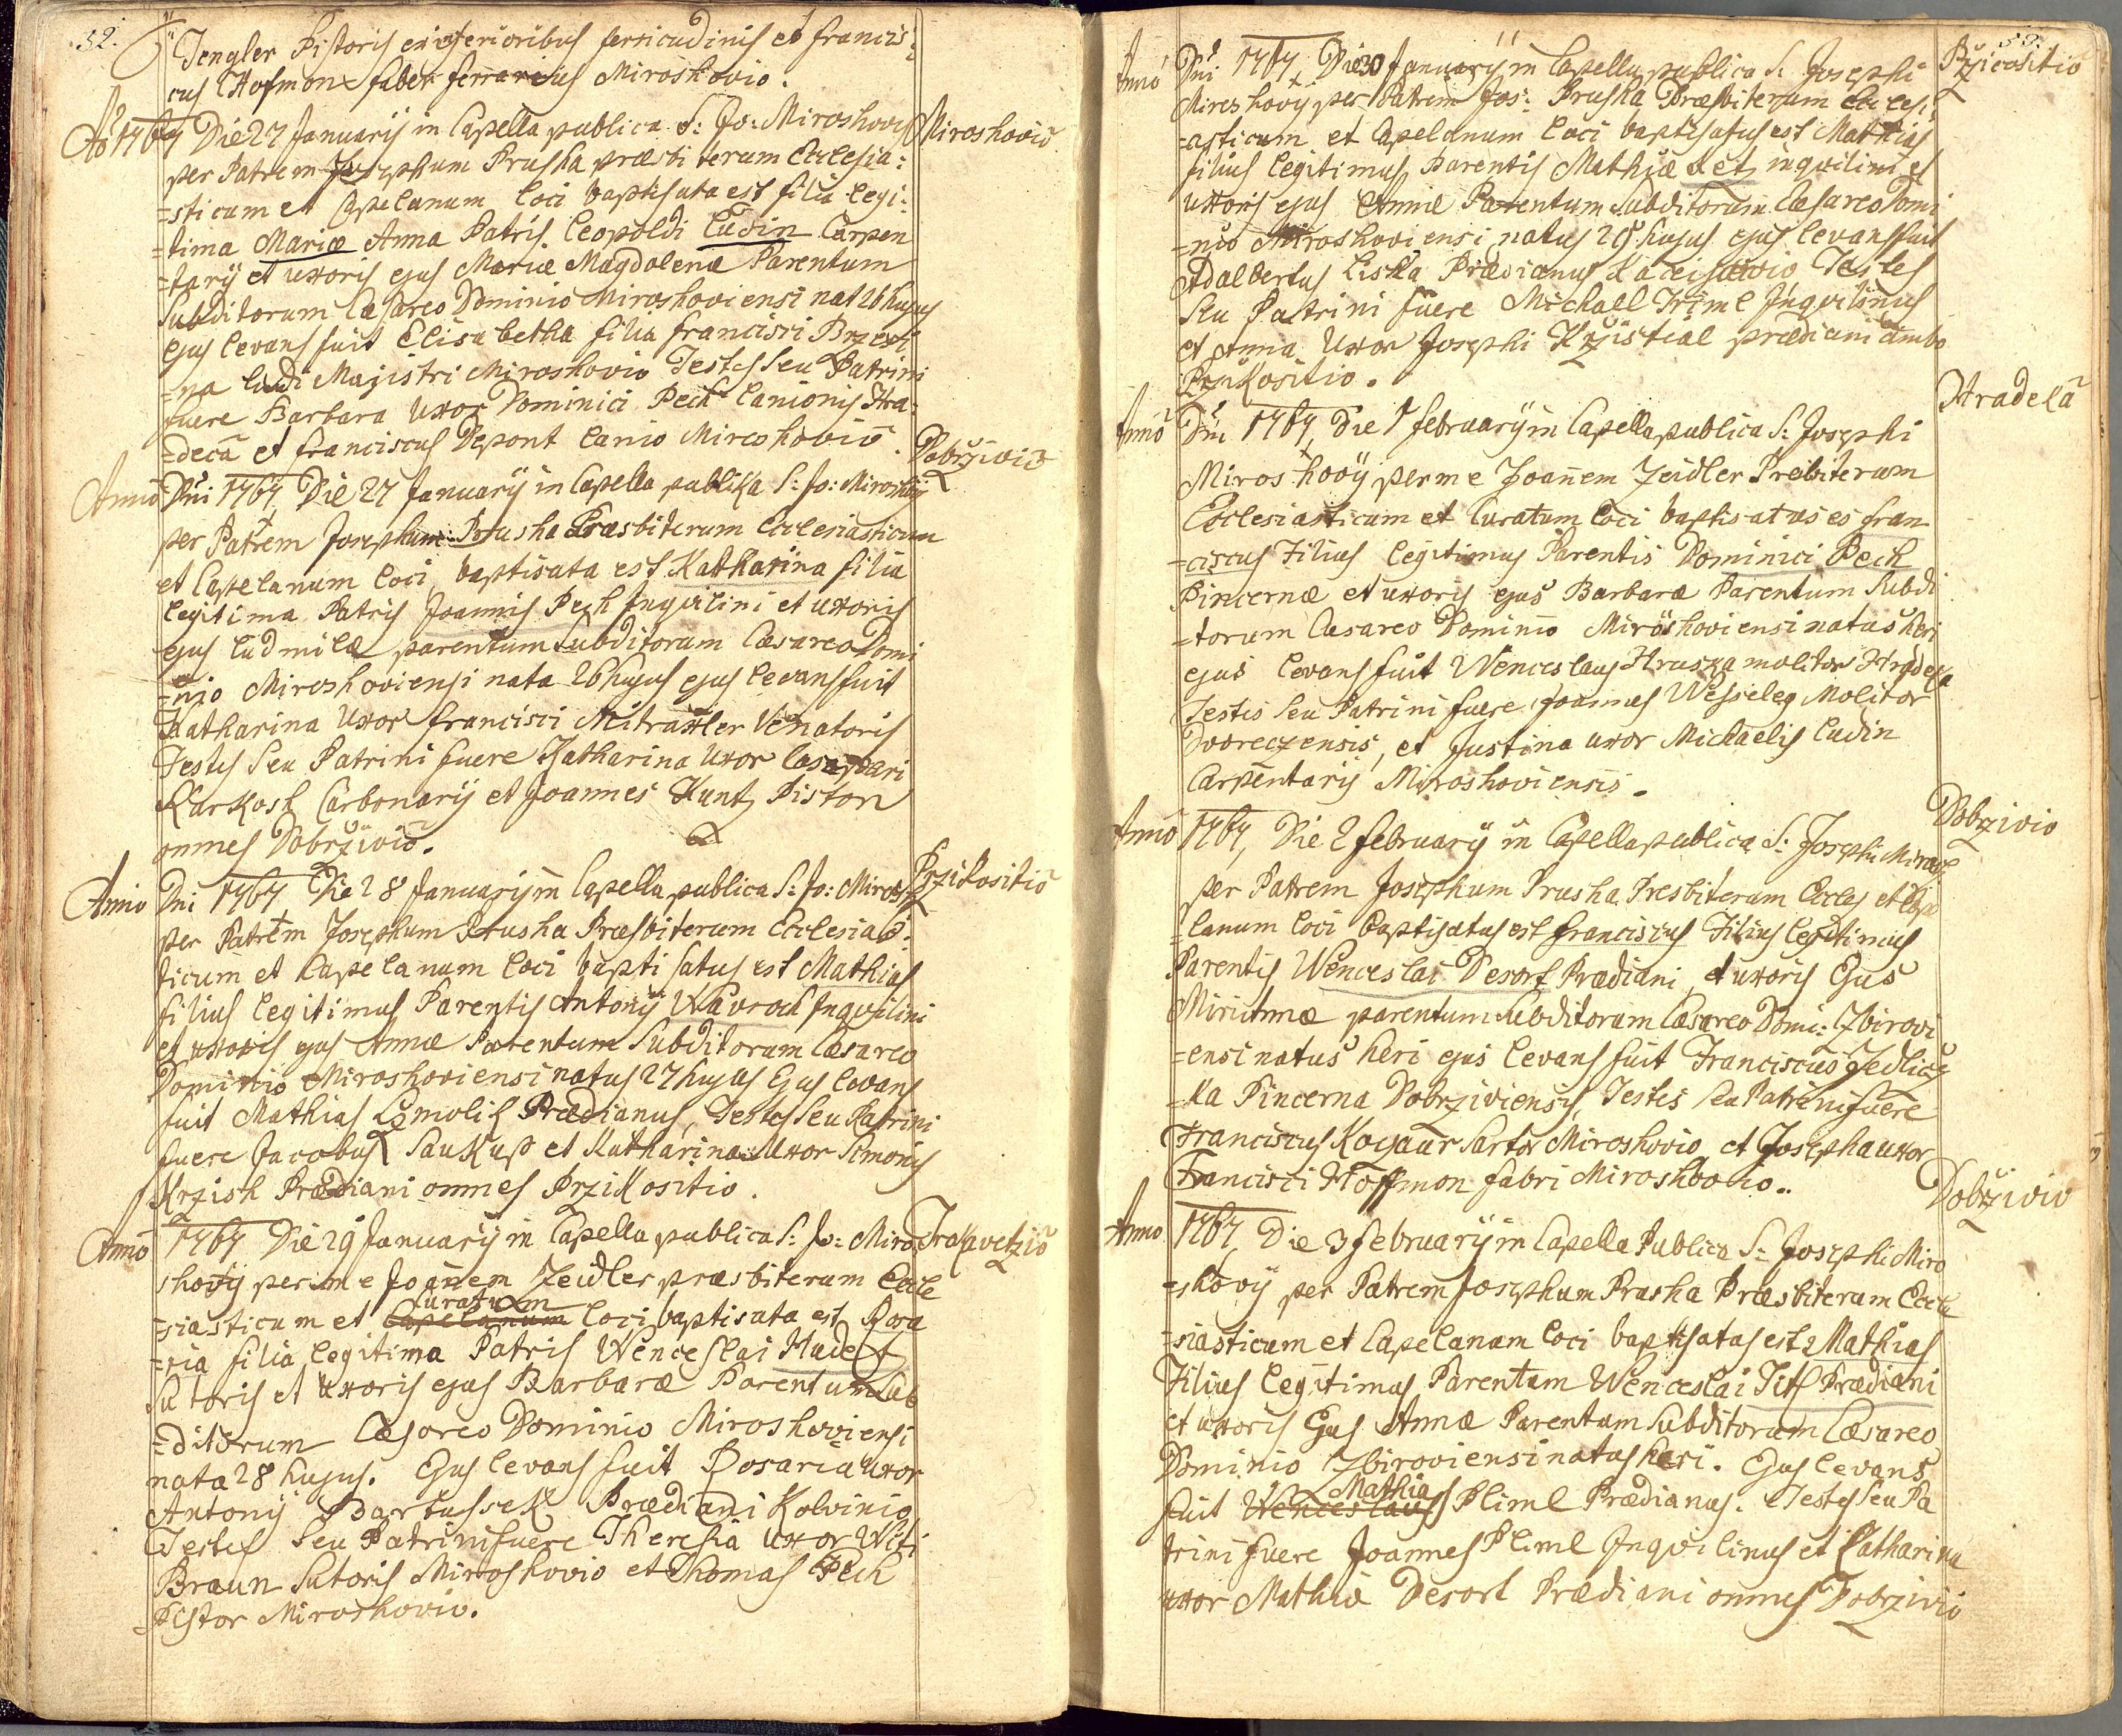 52.
Tengler Pistoris ex inferioribus ferricudinis et Francis:
cus Hofmon faber ferrarius Miroshovio.
Ao 1767 Die 27 Januarij in Capella publica S: Jo: Miroshovij Miroshovio
per Patrem Josephum Prusha præsbiterum Ecclesia:
=sticum et Capelanum loci baptisata est filia legi:
=tima Maria Anna Patris Leopoldi Cudin Carpen
=tarij et uxoris ejus Mariæ Magdalenæ Parentum
Subditorum Cæsareo Dominio Miroshoviensi nat 26 hujus
ejus levans fuit Elisabetha filia Francisci Brzezi
=na ludi Magistri Miroshovio Testes seu Patrini
fuere Barbara Uxor Dominici Pech Lanionis Hra:
=decā et Franciscus Depont Lanio Miroshoviō.
Anno Dni 1767 Die 27 Januarij in Capella publika S: Jo: Miroshovij Dobrziwio
per Patrem Josephum Prusha Præsbiterum Ecclesiasticum
et Capelanum loci baptisata est Katharina filia
legitima Patris Joannis Pech Inqvilini et uxoris
ejus Ludmilæ parentum Subditorum Cæsareo Domi
=nio Miroshoviensi nata 26 hujus ejus levans fuit
Katharina Uxor Francisci Mitraxler Venatoris
Testes Seu Patrini fuere Katharina Uxor Casapari
Karkosh Carbonarij et Joannes Kuntz Pistor
omnes Dobrziwiō.
Anno Dni 1767 Die 28 Januarij in Capella publica S: Jo: Mirosh Przikositio
per Patrem Josephum Prusha Præsbiterum Ecclesias:
ticum et Capelanum loci baptisatus est Mathias
filius legitimus Parentis Antonij Wavroch Inqvilini
et uxoris ejus Annæ Parentum Subditorum Cæsareo
Dominio Miroshoviensi natus 27 hujus Ejus levans
fuit Mathias Lomolik Prædianus, Testes Seu Patrini
fuere Jacobus Saukup et Katharina Uxor Simonis
Krzish Prædiani omnes Przikositio.
Anno 1767 Die 29 Januarij in Capella publica S: Jo: Miro Trokavetzio
shovij per me Joannem Zeidler præsbiterum Eccle
Curatum
=siasticum et Capelanum loci baptisata est Rosa
=ria filia legitima Patris Wenceslai Hudetz
Sutoris et uxoris ejus Barbaræ Parentum Sub
=ditorum Cæsareo Dominio Miroshoviensi
nata 28 hujus. Ejus levans fuit Rosaria uxor
Antonij Bartussek Prædiani Kolvinio
Testes Seu Patrini fuere Theresia Uxor Witi
Braun Sutoris Miroshovio et Thomas Pech
Pistor Miroshovio.
53.
Anno Dni 1767 Die 30 Januarij in Capella publica S: Josephi Przicositio
Miroshovij per Patrem Jos: Prusha Præsbiterum Ecclesi:
=asticum et Capelanum loci baptisatus est Mathias
filius legitimus Parentis Mathiæ inqvilini et
uxoris ejus Annæ Parentum Subditorum Cæsareo Domi
=nio Miroshoviensi natus 29 hujus ejus levans fuit
Adalbertus Liska Prædianus Testes
seu Patrini fuere Michael Triml Inqvilinus
et Anna Uxor Josephi Krzistial prædiani ambo
Przikositio.
Anno Dni 1767, Die 1 februarij in Capella publica S: Josephi Hradekā
Miroshovij per me Joannem Zeidler Prebiterum
Ecclesiasticum et Curatum loci baptisatus es Fran
=ciscus Filius legitimus Parentis Dominici Pech
Pincernæ et uxoris ejus Barbaræ Parentum Subdi
=torum Cæsareo Dominio Miroshoviensi natus heri
ejus levans fuit Wenceslaus Hruska molitor Hradeka
Testis seu Patrini fuere Joannes Wesseleg Molitor
Dvoreczensis, et Justina uxor Michaelis Cudin
Carpentarij Miroshoviensis.
Anno 1767, Die 2 februarij in Capella publica S: Josephi Mirosh Dobrzivio
per Patrem Josephum Prusha Presbiterum Eccles et Cape
=lanum loci baptisatus est Franciscus Filius legitimus
Parentis Wenceslai Desort Prædiani, et uxoris Ejus
Mariannæ parentum Subditorum Cæsareo Domi: Zbirovi
=ensi natus heri ejus levans fuit Franciscus Jedlicz
=ka Pincerna Dobrziviensis, Testes seu Patrini fuere
Franciscus Kogaur Sartor Miroshovio, et Josepha uxor
Francisci Hoffmon fabri Miroshovio..
Anno 1767, Die 3 februarij in Capella Publica S: Josephi Miro Dobrzivio
=shovij per Patrem Josephum Prusha Præsbiterum Eccle
=siasticum et Capelanam loci baptisatus est Mathias
Filius legitimus Parentum Wenceslai Titl Prædiani
et uxoris Ejus Annæ Parentum Subditorum Cæsareo
Dominio Zbiroviensi natus heri. Ejus levans
Mathias
fuit Wenceslaus Pliml Prædianus. Testes seu Pa
trini fuere Joannes Pliml Inqvilinus et Catharina
uxor Mathiæ Desort Prædiani omnes Dobrzivio